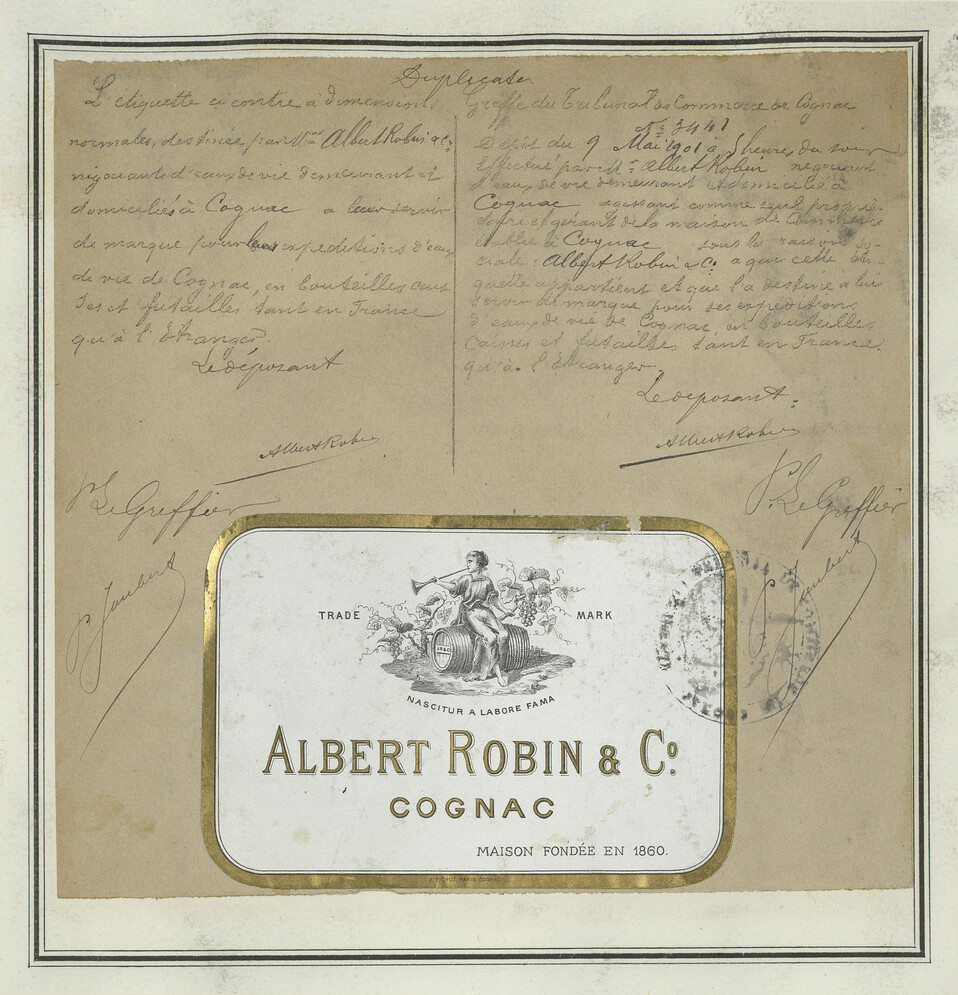 Duplicata
L'étiquette ci contre à dimensions
normales, destinée par Mrs Albert Robin & Co
négociants d'eaux de vie demeurant et
domiciliés à Cognac a leur servir
de marque pour les expéditions d'eaux
de vie de Cognac, en bouteilles cais
ses et futailles tant en France
qu'à l'Etranger.
Le déposant
Albert Robin
P. Le Greffier
P. Joubert
Greffe du Tribunal de Commerce de Cognac
No 3441
Dépôt du 9 Mai 1901 à 5 heures du soir
Effectué par Mr Albert Robin négociant
d'eaux de vie demeurant et domicilié à
Cognac agissant comme seul proprié-
taire et gérant de la maison de Commerce
établie à Cognac sous la raison so-
ciale: Albert Robin & Co. à qui cette éti-
quette appartient et qui l'a destinée a lui
servir de marque pour ses expéditions
d'eaux de vie de Cognac, en bouteilles
caisses et futailles tant en France.
qu'à l'Etranger.
Le déposant.
Albert Robin
P. Le Greffier
P. Joubert
TRADE MARK
A R & Co
NASCITUR A LABORE FAMA
ALBERT ROBIN & Co.
COGNAC
MAISON FONDÉE EN 1860.